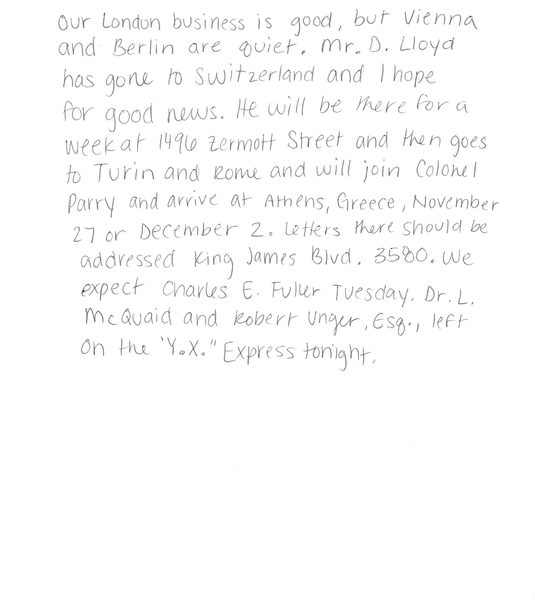 Our London business is good, but Vienna
and Berlin are quiet. Mr. D. Lloyd
has gone to Switzerland and I hope
for good news. He will be there for a
week at 1496 Zermott Street and then goes
to Turin and Rome and will join Colonel
Parry and arrive at Athens, Greece, November
27 or December 2. Letters there should be
addressed King James Blvd. 3580. We
expect Charles E. Fuller Tuesday. Dr. L.
McQuaid and Robert Unger, Esq., left
on the 'Y.X." Express tonight.